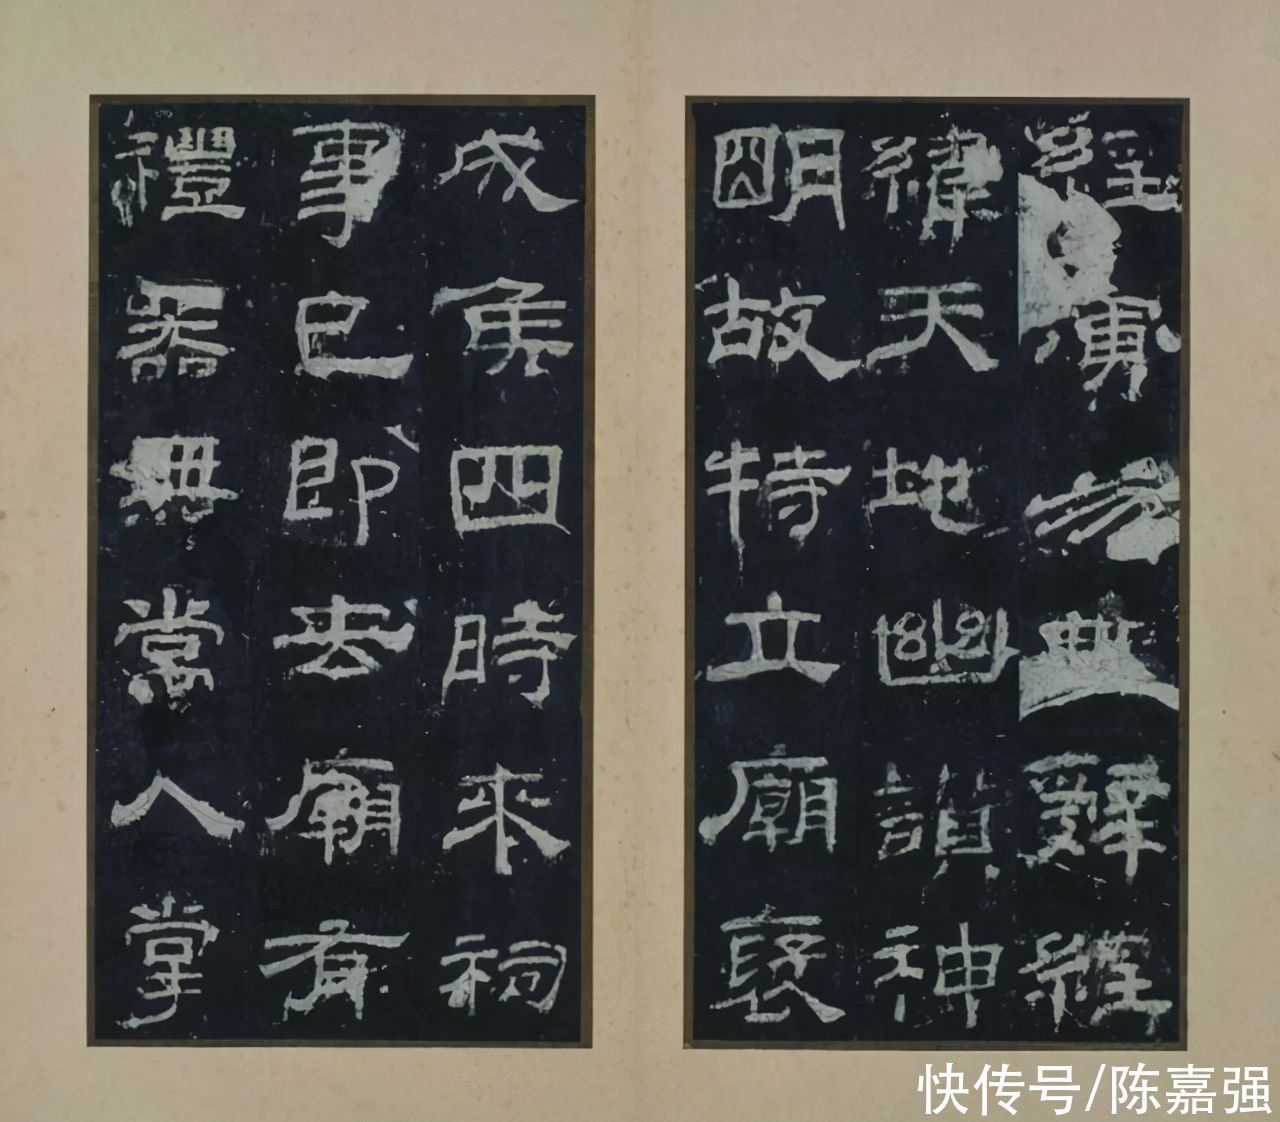 經演辭經
緯天地幽讚神
明故特立廟褒
成侯四時來祠
事已即去廟有
禮器無常人掌
快传号/陈嘉强